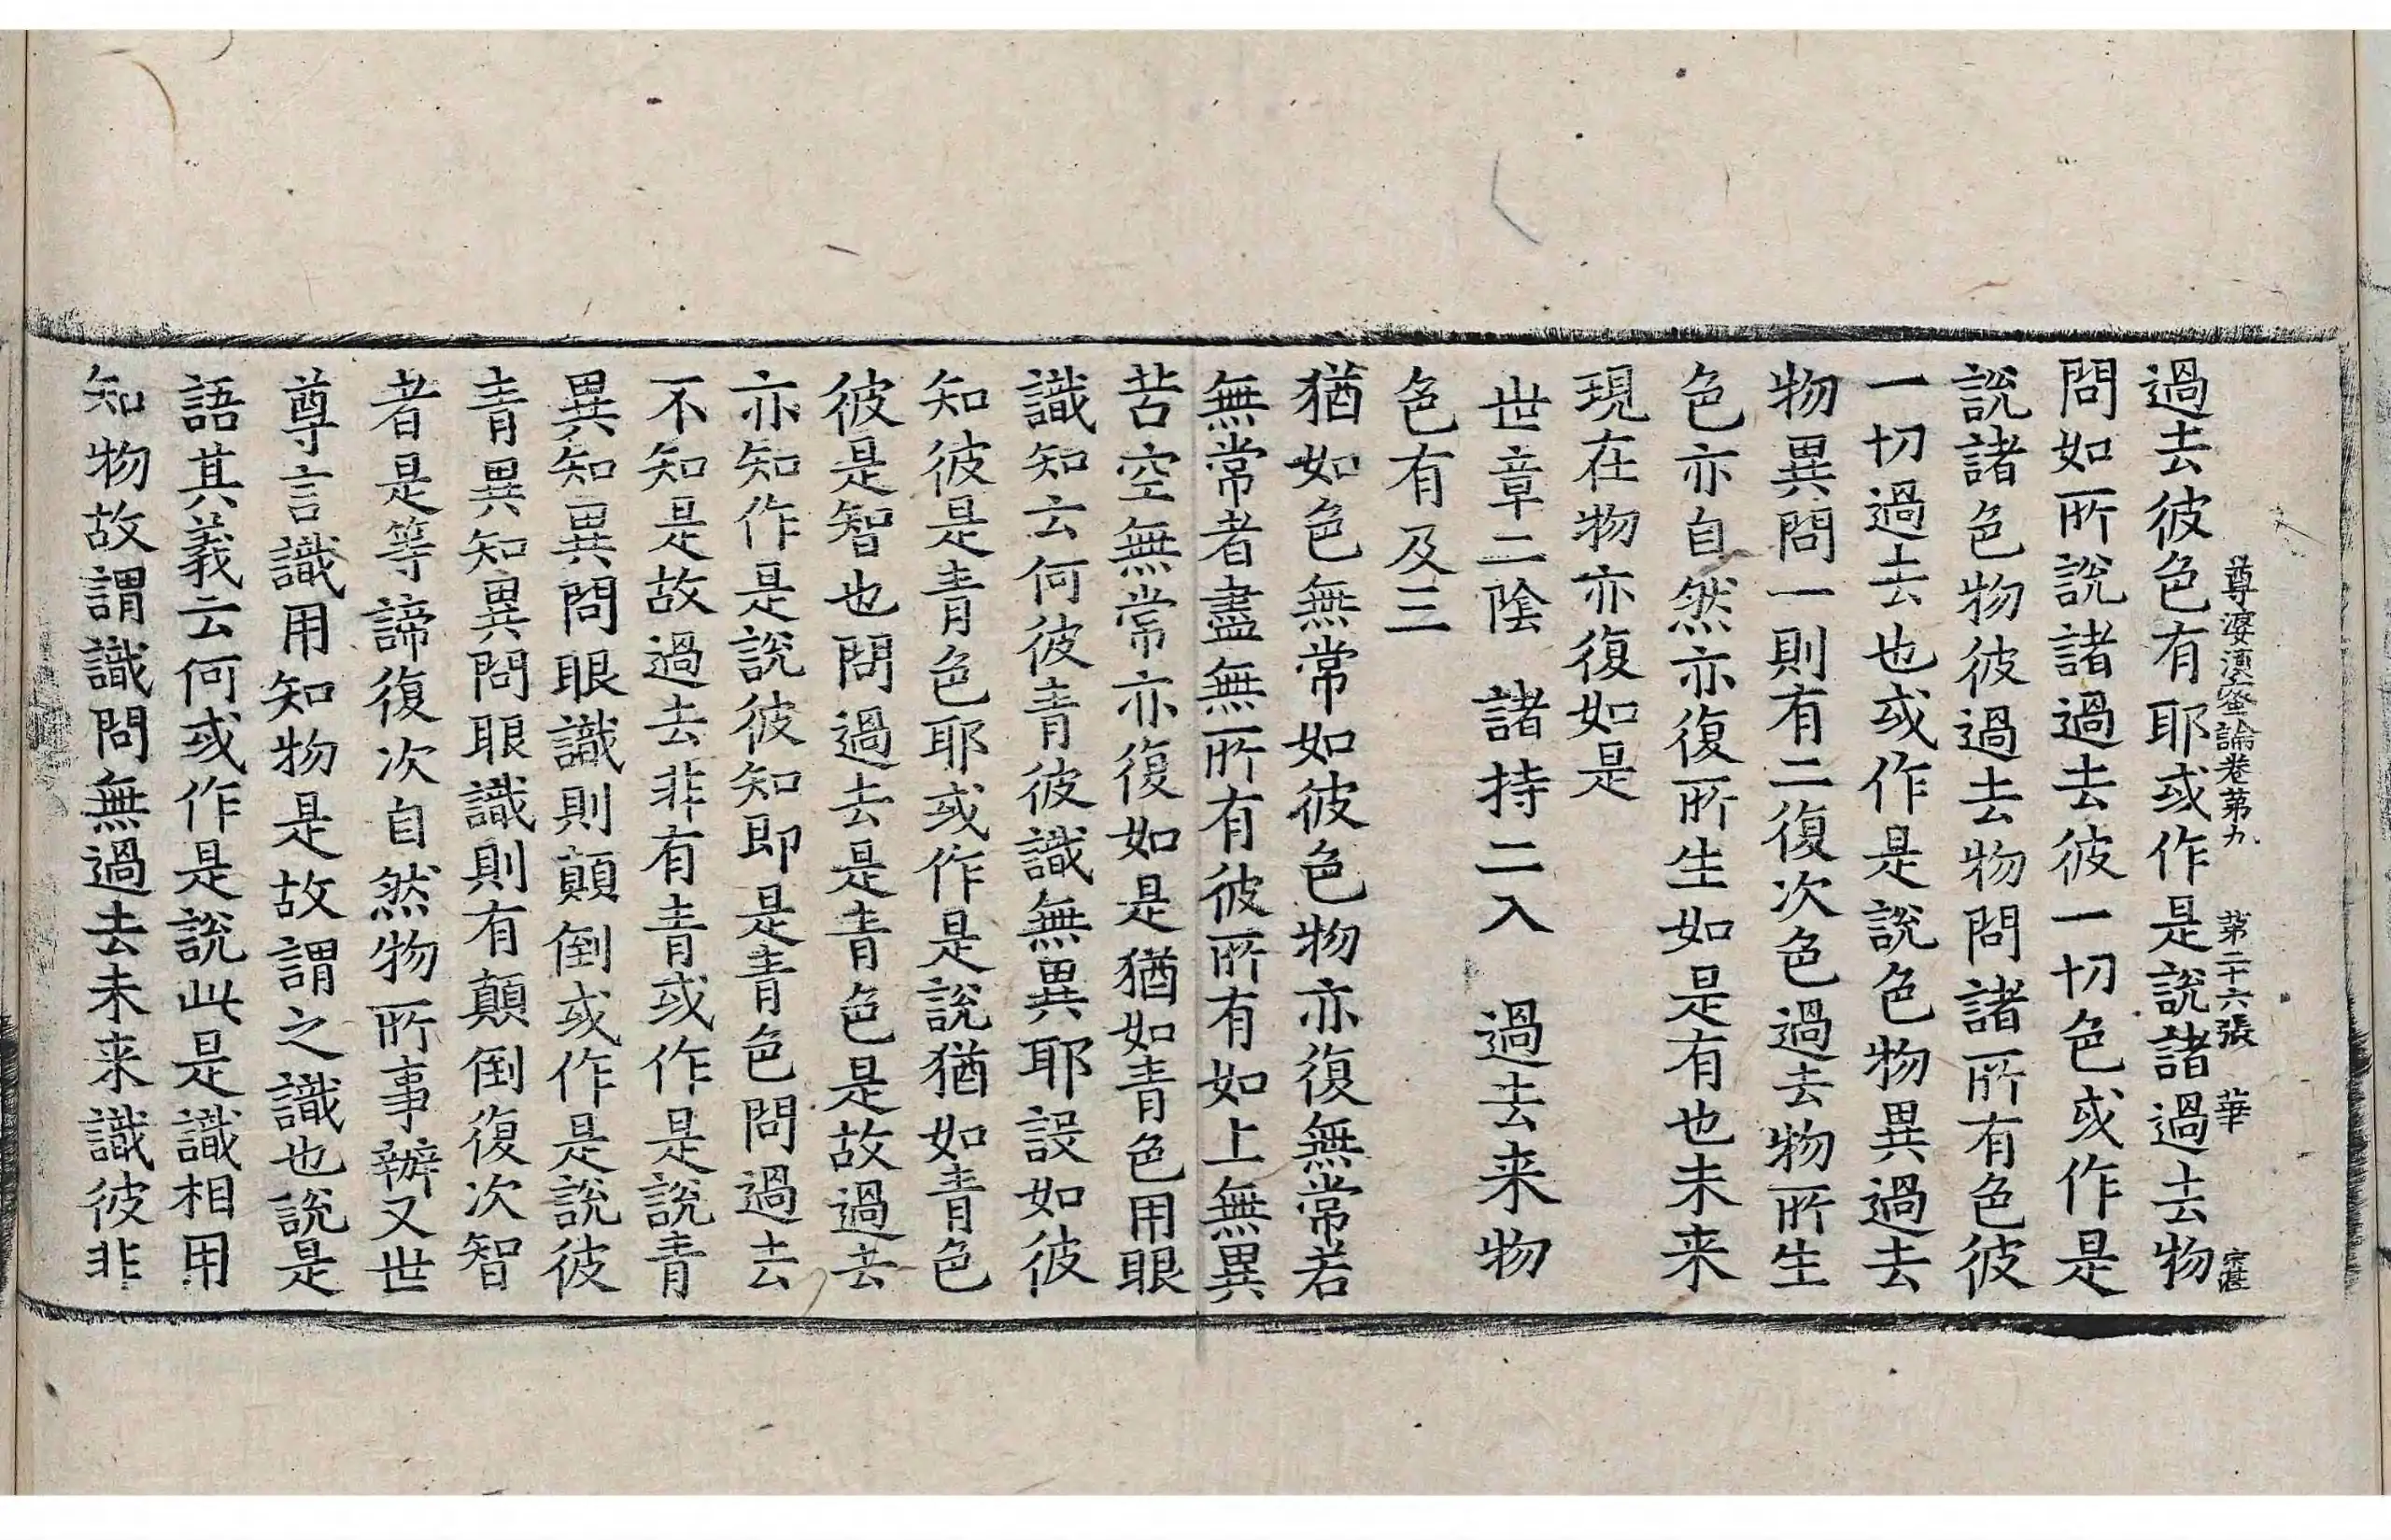 尊婆湏蜜論卷苐九 苐二十六張 華 宗湛
過去彼色有耶或作是說諸過去物
問如所說諸過去彼一切色或作是
說諸色物彼過去物問諸所有色彼
一切過去也或作是說色物異過去
物異問一則有二復次色過去物所生
色亦自然亦復所生如是有也未来
現在物亦復如是
世章二陰 諸持二入 過去来物
色有及三
猶如色無常如彼色物亦復無常若
無常者盡無所有彼所有如上無異
苦空無常亦復如是猶如青色用眼
識知云何彼青彼識無異耶設如彼
知彼是青色耶或作是說猶如青色
彼是智也問過去是青色是故過去
亦知作是說彼知即是青色問過去
不知是故過去非有青或作是說青
異知異問眼識則顛倒或作是說彼
青異知異問眼識則有顛倒復次智
者是等諦復次自然物所事辦又世
尊言識用知物是故謂之識也說是
語其義云何或作是說此是識相用
知物故謂識問無過去未来識彼非